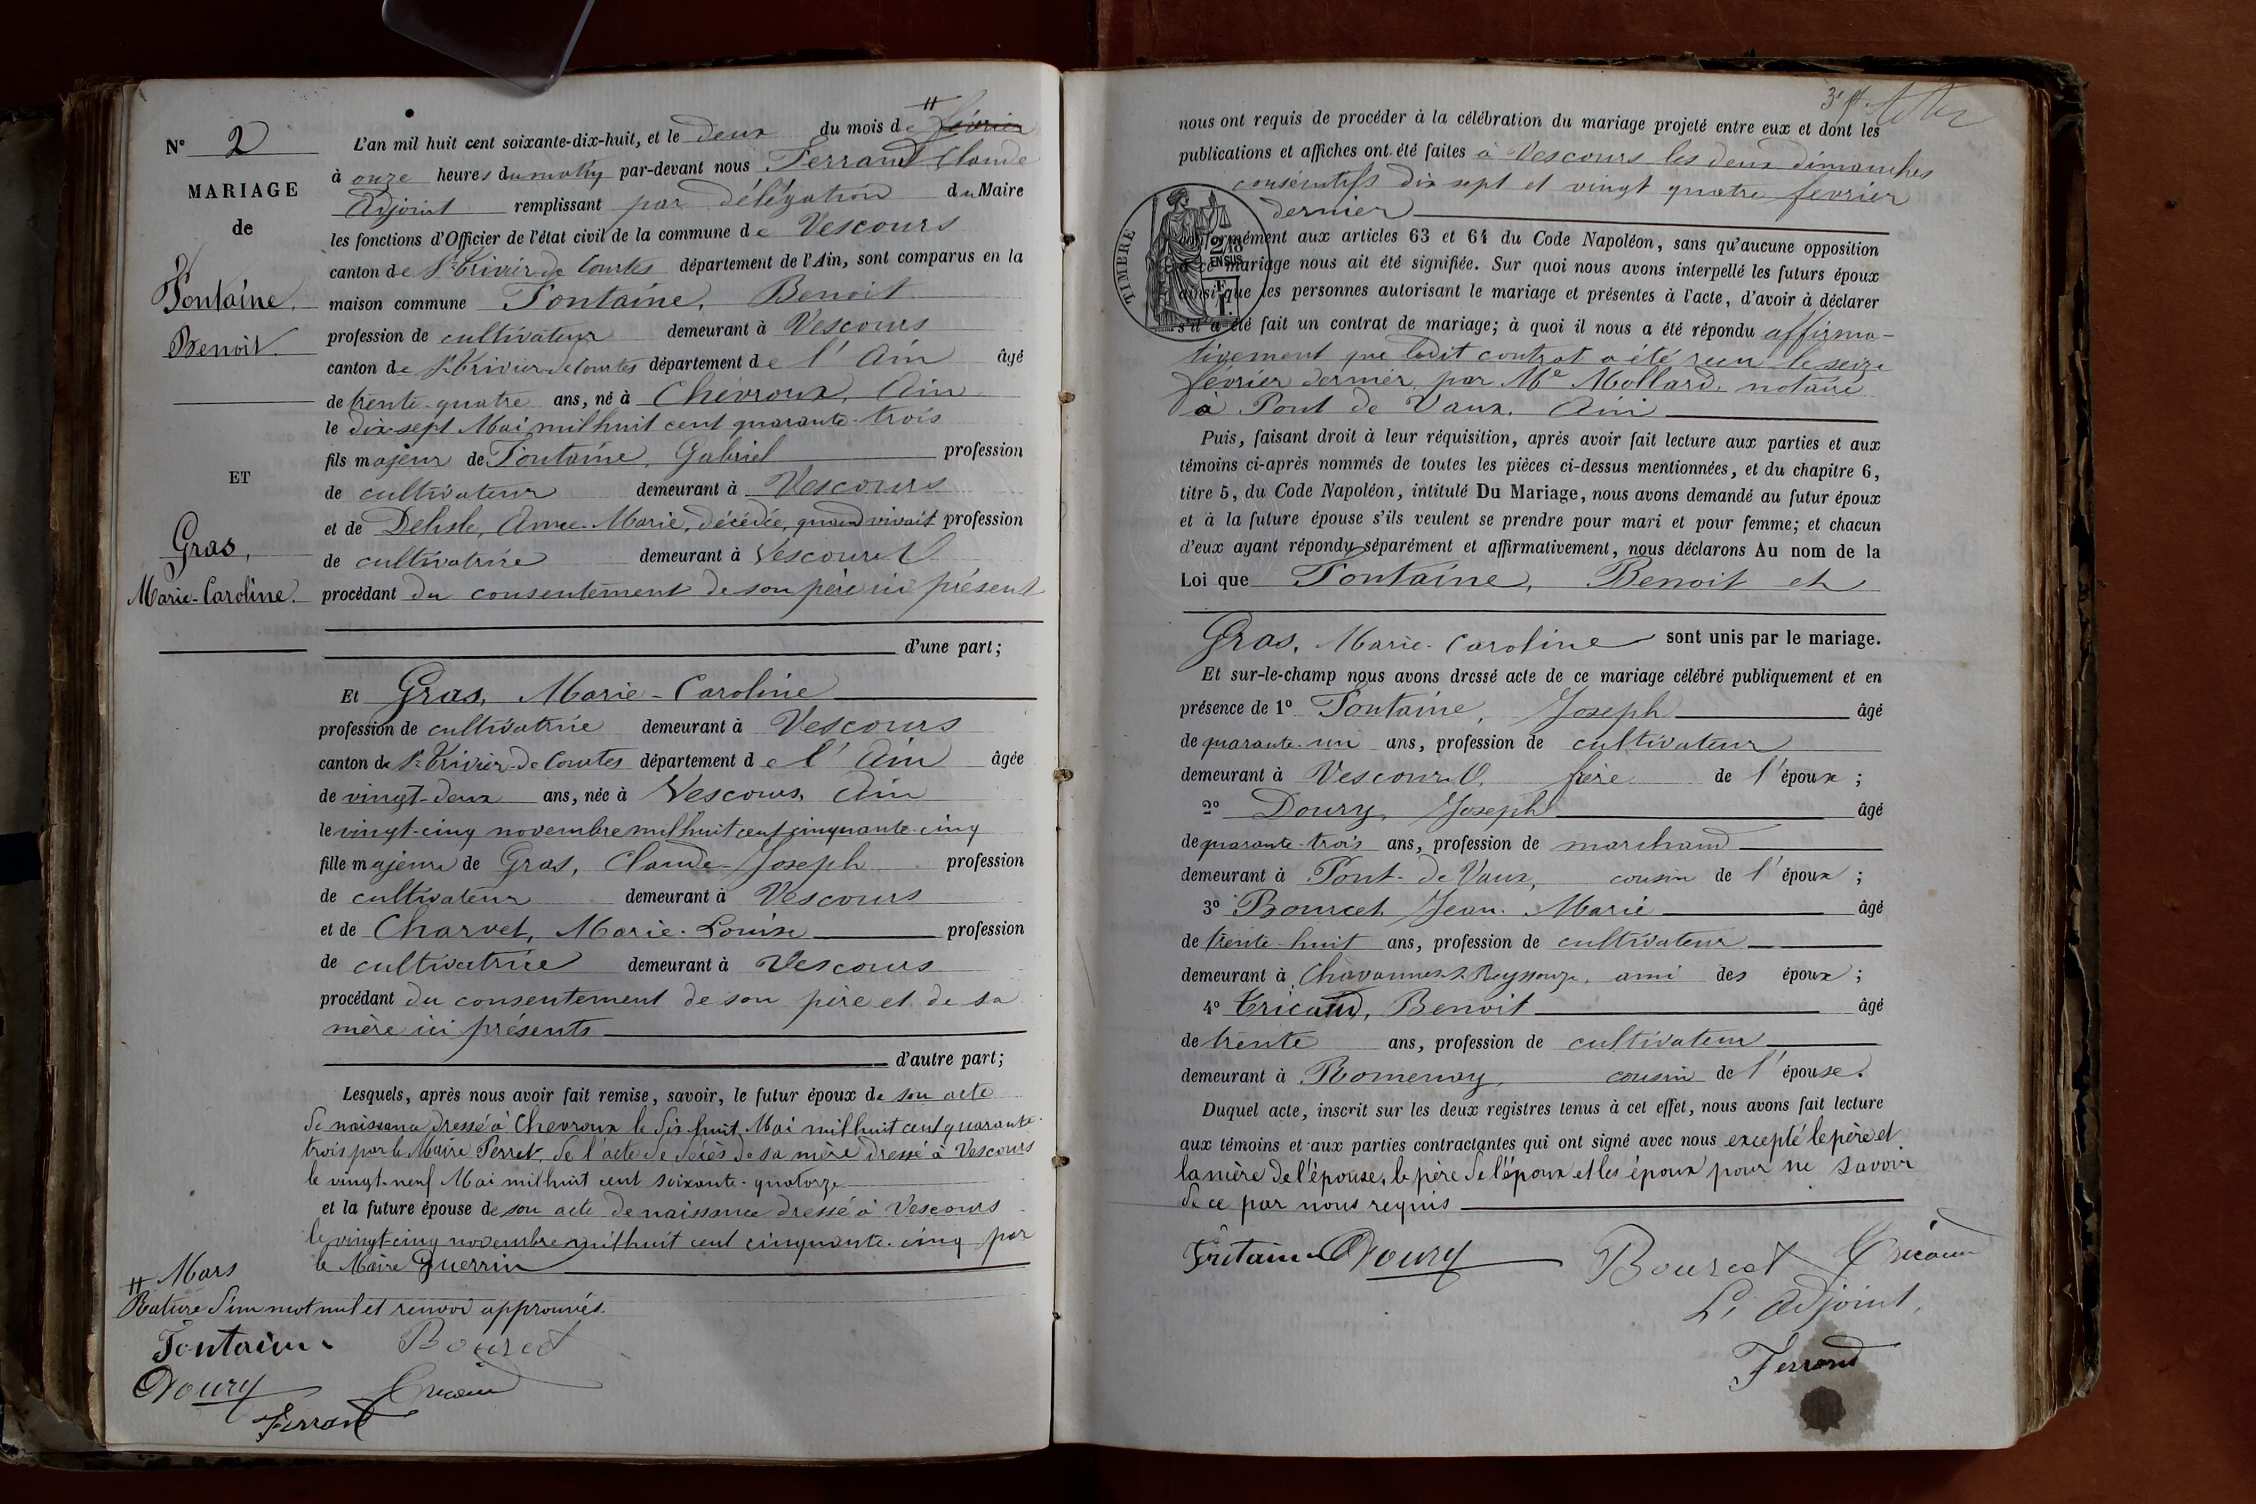 N° 2
MARIAGE
de
Fontaine,
Benoit.
ET
Gras,
Marie-Caroline.
L'an mil huit cent soixante-dix-huit, et le deux du mois de février #
à onze heures du matin par-devant nous Ferrand Claude
adjoint remplissant par délégation du Maire
les fonctions d'Officier de l'état civil de la commune de Vescours
canton de St Trivier de Courtes département de l'Ain, sont comparus en la
maison commune Fontaine, Benoit
profession de cultivateur demeurant à Vescours
canton de St Trivier de Courtes département de l'Ain âgé
de trente-quatre ans, né à Chevroux, Ain
le dix-sept Mai mil huit cent quarante-trois
fils majeur de Fontaine, Gabriel profession
de cultivateur demeurant à Vescours
et de Delisle, Anne-Marie, décédée, quand vivait profession
de cultivatrice demeurant à Vescours
procédant du consentement de son père ici présent
d'une part;
Et Gras, Marie-Caroline
profession de cultivatrice demeurant à Vescours
canton de St Trivier-de Courtes département de l'Ain âgée
de vingt-deux ans, née à Vescours, Ain
le vingt-cinq novembre mil huit cent cinquante-cinq
fille majeure de Gras, Claude-Joseph profession
de cultivateur demeurant à Vescours
et de Charvet, Marie-Louise profession
de cultivatrice demeurant à Vescours
procédant du consentement de son père et de sa
mère ici présents
d'autre part;
Lesquels, après nous avoir fait remise, savoir, le futur époux de son acte
de naissance dressé à Chevroux le dix huit Mai mil huit cent quarante-
trois par le Maire Perret, de l'acte de décès de sa mère dressé à Vescours
le vingt-neuf Mai mil huit cent soixante-quatorze
et la future épouse de son acte de naissance dressé à Vescours
le vingt-cinq novembre mil huit cent cinquante-cinq par
le Maire Guerrin
# Mars
Rature d'un mot nul et renvoi approuvés.
Fontaine Bourcet
Doury Tricaud
Ferrand
nous ont requis de procéder à la célébration du mariage projeté entre eux et dont les
publications et affiches ont été faites à Vescours les deux dimanches
consécutifs dix sept et vingt quatre février
dernier
TIMBRE
2/10
EN SUS
conformément aux articles 63 et 64 du Code Napoléon, sans qu'aucune opposition
à ce mariage nous ait été signifiée. Sur quoi nous avons interpellé les futurs époux
ainsi que les personnes autorisant le mariage et présentes à l'acte, d'avoir à déclarer
s'il a été fait un contrat de mariage; à quoi il nous a été répondu affirma-
tivement que ledit contrat a été reçu le seize
février dernier par Me Mollard, notaire
à Pont de Vaux, Ain
Puis, faisant droit à leur réquisition, après avoir fait lecture aux parties et aux
témoins ci-après nommés de toutes les pièces ci-dessus mentionnées, et du chapitre 6,
titre 5, du Code Napoléon, intitulé Du Mariage, nous avons demandé au futur époux
et à la future épouse s'ils veulent se prendre pour mari et pour femme; et chacun
d'eux ayant répondu séparément et affirmativement, nous déclarons Au nom de la
Loi que Fontaine, Benoit et
Gras, Marie-Caroline sont unis par le mariage.
Et sur-le-champ nous avons dressé acte de ce mariage célébré publiquement et en
présence de 1° Fontaine, Joseph âgé
de quarante-un ans, profession de cultivateur
demeurant à Vescours, frère de l'époux;
2° Doury, Joseph âgé
de quarante-trois ans, profession de marchand
demeurant à Pont-de Vaux, cousin de l'époux;
3° Bourcet, Jean-Marie âgé
de trente-huit ans, profession de cultivateur
demeurant à Chavannes-s. Reyssouze, ami des époux;
4° Tricaud, Benoit âgé
de trente ans, profession de cultivateur
demeurant à Romenay, cousin de l'épouse.
Duquel acte, inscrit sur les deux registres tenus à cet effet, nous avons fait lecture
aux témoins et aux parties contractantes qui ont signé avec nous excepté le père et
la mère de l'épouse, le père de l'époux et les époux pour ne savoir
de ce par nous requis
Fontaine Doury Bourcet Tricaud
L'adjoint,
Ferrand